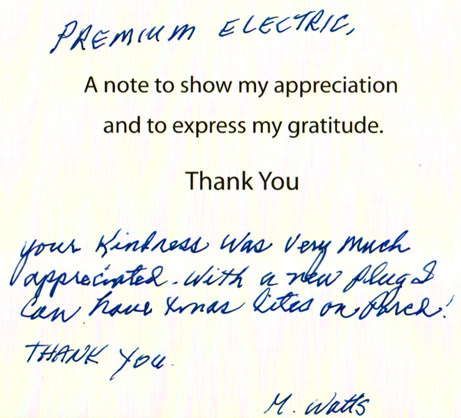 PREMIUM ELECTRIC,
A note to show my appreciation
and to express my gratitude.
Thank You
your kindness was very much
appreciated. With a new plug I
can have Xmas lites on Porch!
THANK You.
M. Watts